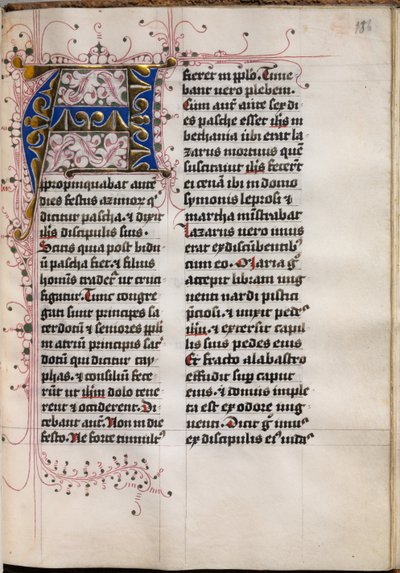 186
A
propinquabat autē
dies festus azimoꝝ q̄
dicitur pascha. ⁊ dixit
ih̄s discipulis suis.
Scitis quia post bidu
ū pascha fiet. ⁊ filius
hominis tradet᷒ ut cruci
figatur. Tunc congre
gati sunt principes sa
cerdotū ⁊ seniores ppl̄i
in atriū principis sac̄
dotū qui dicitur cay
phas. ⁊ consiliū fece
rūt ut ih̄m dolo tene
rent ⁊ occiderent. Di
cebant aut̄. Non in die
festo. Ne forte tumult᷒
fieret in ppl̄o. Time
bant uero plebem.
Cum aut̄ ante sex di
es pasche esset ih̄s in
bethania ubi erat la
zarus mortuus quē
suscitauit ih̄s fecerūt
ei cenā ibi in domo
symonis leprosi ⁊
martha mīstrabat
Lazarus uero unus
erat ex discūbentib᷒
cum eo. Maria ḡ
accepit libram ung
uenti nardi pistici
p̄ciosi. ⁊ unxit pedes
ih̄u. ⁊ extersit capil
lis suis pedes eius
Et fracto alabastro
effudit sup̄ caput
eius. ⁊ domus imple
ta est ex odore ung
uenti. Dicit ḡ unus
ex discipulis ei᷒ iuda